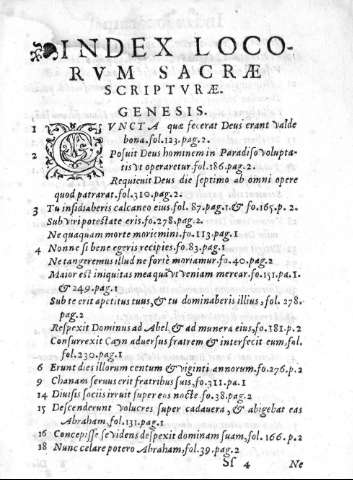 INDEX LOCO-
RVM SACRÆ
SCRIPTVRÆ.
GENESIS.
1 CVNCTA quæ fecerat Deus erant valde
bona.fol.123.pag.2.
2 Posuit Deus hominem in Paradiso volupta-
tis vt operaretur.fol.186.pag.2.
Requieuit Deus die septimo ab omni opere
quod patrarat.fol.310.pag.2.
3 Tu insidiaberis calcaneo eius.fol.87.pag.1.& fo.165.p.2.
Sub viri potestate eris.fo.278.pag.2.
Ne quaquam morte moriemini.fo.113.pag.1
4 Nonne si bene egeris recipies.fo.83.pag.1
Ne tangeremus illud ne fortè moriamur.fo.40.pag.2
Maior est iniquitas mea quā vt veniam merear.fo.151.pa.1.
& 249.pag.1
Sub te erit apetitus tuus, & tu dominaberis illius, fol. 278.
pag.2
Respexit Dominus ad Abel. & ad munera eius,fo.181.p.2
Consurrexit Cayn aduersus fratrem & interfecit eum,fol.
fol.230.pag.1
6 Erunt dies illorum centum & viginti annorum.fo.276.p.2
9 Chanam seruus erit fratribus suis,fo.311.pa.1
14 Diuisis sociis irruit super eos nocte.fo.38.pag.2
15 Descenderunt volucres super cadauera, & abigebat eas
Abraham,fol.131.pag.1
16 Concepisse se videns despexit dominam suam,fol.166.p.2
18 Nunc celare potero Abraham,fol.39.pag.2
Ss 4 Ne